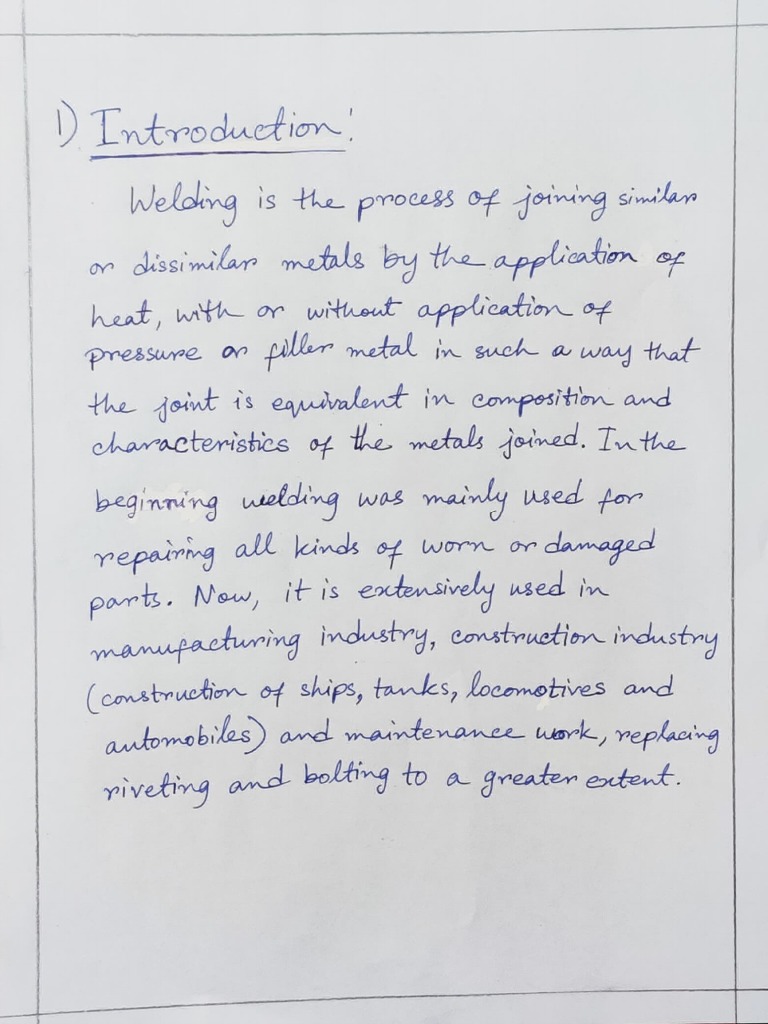 1) Introduction:
Welding is the process of joining similar
or dissimilar metals by the application of
heat, with or without application of
pressure or filler metal in such a way that
the joint is equivalent in composition and
characteristics of the metals joined. In the
beginning welding was mainly used for
repairing all kinds of worn or damaged
parts. Now, it is extensively used in
manufacturing industry, construction industry
(construction of ships, tanks, locomotives and
automobiles) and maintenance work, replacing
riveting and bolting to a greater extent.